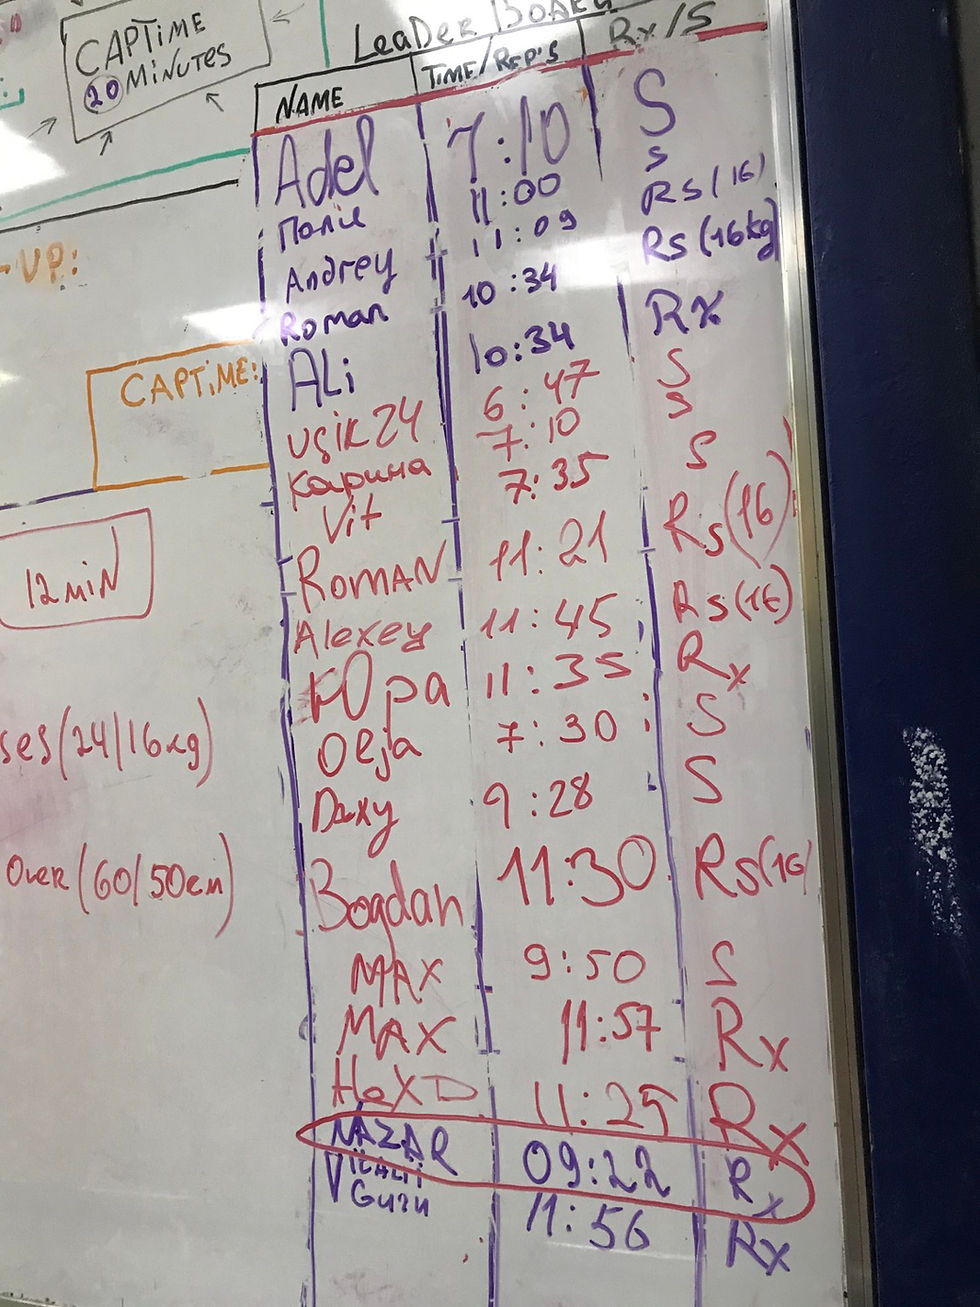 CAPTIME
20 MINUTES
LeaDer BoArd
NAME TIME/REP'S Rx/S
Adel 7:10 S
Поліс 11:00 S
Andrey 11:09 RS(16)
Roman 10:34 RS(16kg)
ALi 10:34 Rx
usik24 6:47 S
Карина 7:10 S
Vit 7:35 S
ROMAN 11:21 Rs(16)
Alexey 11:45 Rs(16)
Юра 11:35 Rx
Olja 7:30 S
Daxy 9:28 S
Bogdan 11:30 Rs(16)
MAX 9:50 S
MAX 11:57 Rx
HeXD 11:25 Rx
NAZAR 09:22 Rx
ViTALii
Guru 11:56 Rx
-UP:
CAPTiME:
12 MiN
ses(24/16kg)
Over(60/50cm)